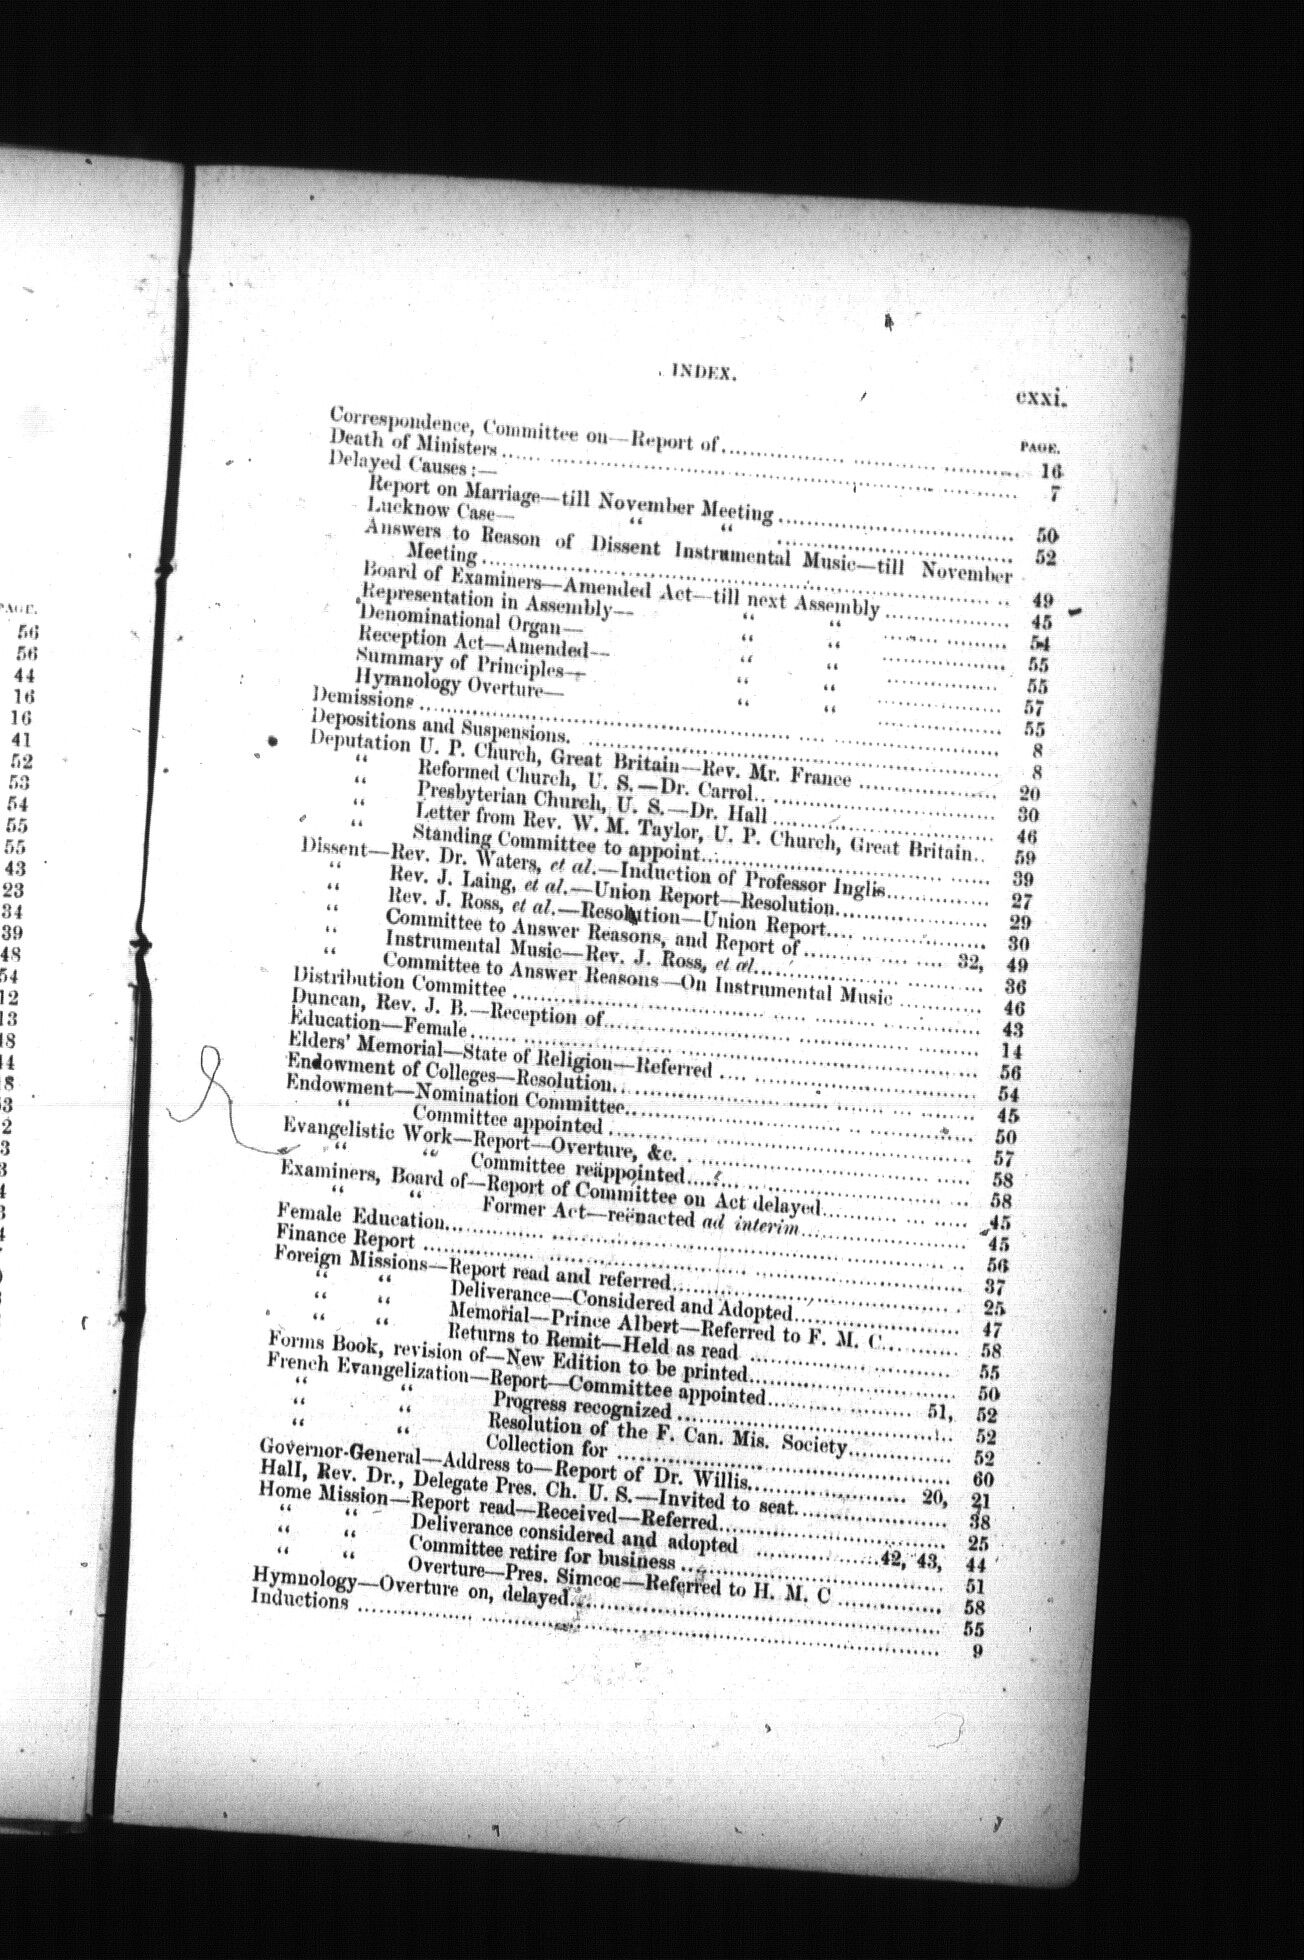 INDEX.
cxxi.
PAGE.
Correspondence, Committee on—Report of 16
Death of Ministers 7
Delayed Causes:—
Report on Marriage—till November Meeting 50
Lucknow Case— “ “ 52
Answers to Reason of Dissent Instrumental Music—till November
Meeting 49
Board of Examiners—Amended Act—till next Assembly 45
Representation in Assembly— “ “ 54
Denominational Organ— “ “ 55
Reception Act—Amended— “ “ 55
Summary of Principles— “ “ 57
Hymnology Overture— “ “ 55
Demissions 8
Depositions and Suspensions. 8
Deputation U. P. Church, Great Britain—Rev. Mr. France 20
“ Reformed Church, U. S.—Dr. Carrol 30
“ Presbyterian Church, U. S.—Dr. Hall 46
“ Letter from Rev. W. M. Taylor, U. P. Church, Great Britain 59
“ Standing Committee to appoint 39
Dissent—Rev. Dr. Waters, et al.—Induction of Professor Inglis 27
“ Rev. J. Laing, et al.—Union Report—Resolution 29
“ Rev. J. Ross, et al.—Resolution—Union Report 30
“ Committee to Answer Reasons, and Report of 32, 49
“ Instrumental Music—Rev. J. Ross, et al. 36
“ Committee to Answer Reasons—On Instrumental Music 46
Distribution Committee 43
Duncan, Rev. J. B.—Reception of 14
Education—Female 56
Elders' Memorial—State of Religion—Referred 54
Endowment of Colleges—Resolution 45
Endowment—Nomination Committee 50
“ Committee appointed 57
Evangelistic Work—Report—Overture, &c. 58
“ “ Committee reäppointed 58
Examiners, Board of—Report of Committee on Act delayed 45
“ “ Former Act—reënacted ad interim 45
Female Education 56
Finance Report 37
Foreign Missions—Report read and referred 25
“ “ Deliverance—Considered and Adopted 47
“ “ Memorial—Prince Albert—Referred to F. M. C. 58
“ “ Returns to Remit—Held as read 55
Forms Book, revision of—New Edition to be printed 50
French Evangelization—Report—Committee appointed 51, 52
“ “ Progress recognized 52
“ “ Resolution of the F. Can. Mis. Society 52
“ “ Collection for 60
Governor-General—Address to—Report of Dr. Willis 20, 21
Hall, Rev. Dr., Delegate Pres. Ch. U. S.—Invited to seat 38
Home Mission—Report read—Received—Referred 25
“ “ Deliverance considered and adopted 42, 43, 44
“ “ Committee retire for business 51
“ “ Overture—Pres. Simcoe—Referred to H. M. C 58
Hymnology—Overture on, delayed 55
Inductions 9
PAGE.
56
56
44
16
16
41
52
53
54
55
55
43
23
34
39
48
54
12
13